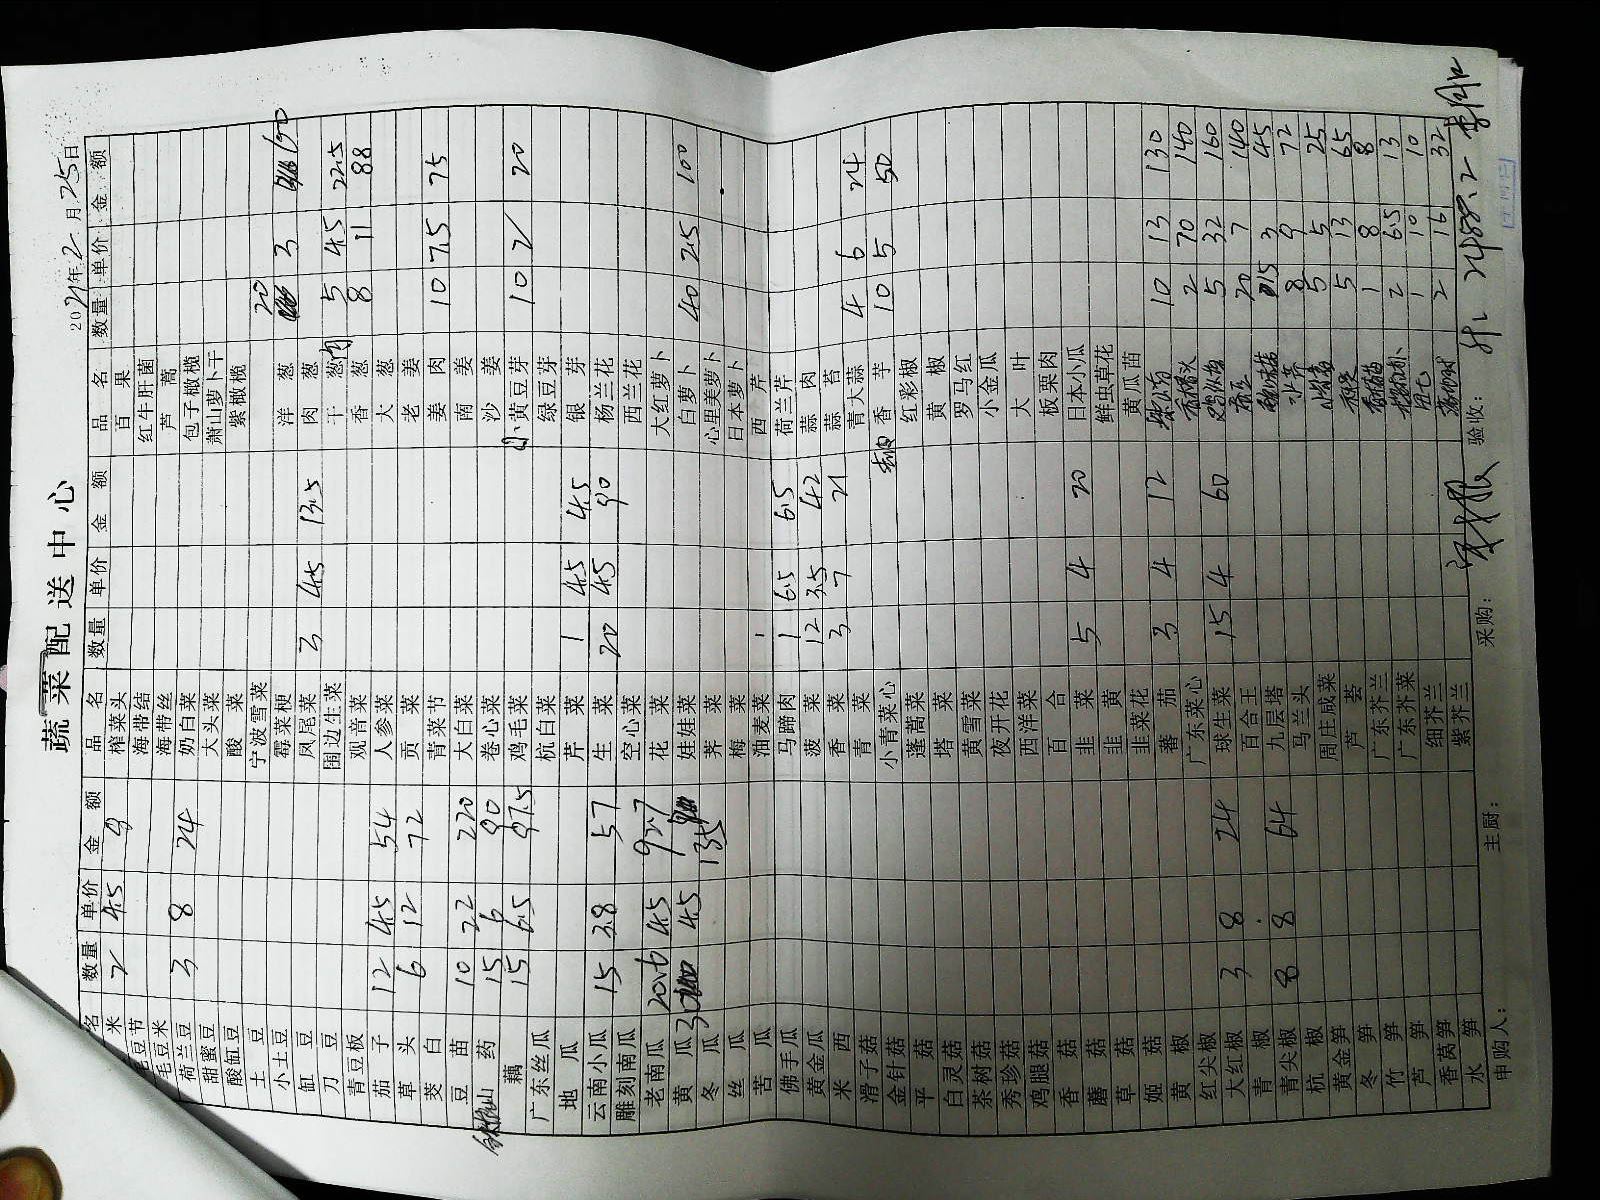 蔬菜配送中心
2021年2月25日
名 数量 单价 金额 品名 数量 单价 金额 品名 数量 单价 金额
米 2 4.5 9 榨菜头 百果
豆节 海带结 红牛肝菌
毛豆米 海带丝 芦蒿
荷兰豆 3 8 24 奶白菜 包子橄榄
甜蜜豆 大头菜 萧山萝卜干
酸缸豆 酸菜 紫橄榄
土豆 宁波雪菜
小土豆 霉菜梗 洋葱 20 3
缸豆 凤尾菜 3 4.5 13.5 肉葱
刀豆 围边生菜 干葱肉 5 4.5 22.5
青豆板 观音菜 香葱 8 11 88
茄子 12 4.5 54 人参菜 大葱
草头 6 12 72 贡菜 老姜
茭白 青菜节 姜肉 10 7.5 75
豆苗 10 22 220 大白菜 南姜
山药 15 6 90 卷心菜 沙姜
藕 15 6.5 97.5 鸡毛菜 黄豆芽 10 2 20
广东丝瓜 杭白菜 绿豆芽
地瓜 芹菜 1 4.5 4.5 银芽
云南小瓜 15 3.8 57 生菜 20 4.5 90 杨兰花
雕刻南瓜 空心菜 西兰花
老南瓜 20.6 4.5 92.7 花菜 大红萝卜
黄瓜 30 4.5 135 娃娃菜 白萝卜 40 2.5 100
冬瓜 荠菜 心里美萝卜
丝瓜 梅菜 日本萝卜
苦瓜 油麦菜 西芹
佛手瓜 马蹄肉 1 6.5 6.5 荷兰芹
黄金瓜 菠菜 12 3.5 42 蒜肉
米西 香菜 3 7 21 蒜苔
滑子菇 青菜 青大蒜 4 6 24
金针菇 小青菜心 香芋 10 5 50
平菇 蓬蒿菜 红彩椒
白灵菇 塔菜 黄椒
茶树菇 黄雪菜 罗马红
秀珍菇 夜开花 小金瓜
鸡腿菇 西洋菜 大叶
香菇 百合 板栗肉
蘑菇 韭菜 5 4 20 日本小瓜
草菇 韭黄 鲜虫草花
姬菇 韭菜花 黄瓜苗
黄椒 蕃茄 3 4 12 10 13 130
红尖椒 广东菜心 2 70 140
大红椒 3 8 24 球生菜 15 4 60 5 32 160
青椒 百合王 20 7 140
青尖椒 8 8 64 九层塔 15 3 45
杭椒 马兰头 水芹 8 9 72
黄金笋 周庄咸菜 5 5 25
冬笋 芦荟 5 13 65
竹笋 广东芥兰 1 8 8
芦笋 广东芥菜 2 6.5 13
香莴笋 细芥兰 1 10 10
水笋 紫芥兰 2 16 32
申购人: 主厨: 采购: 验收: 2488.2